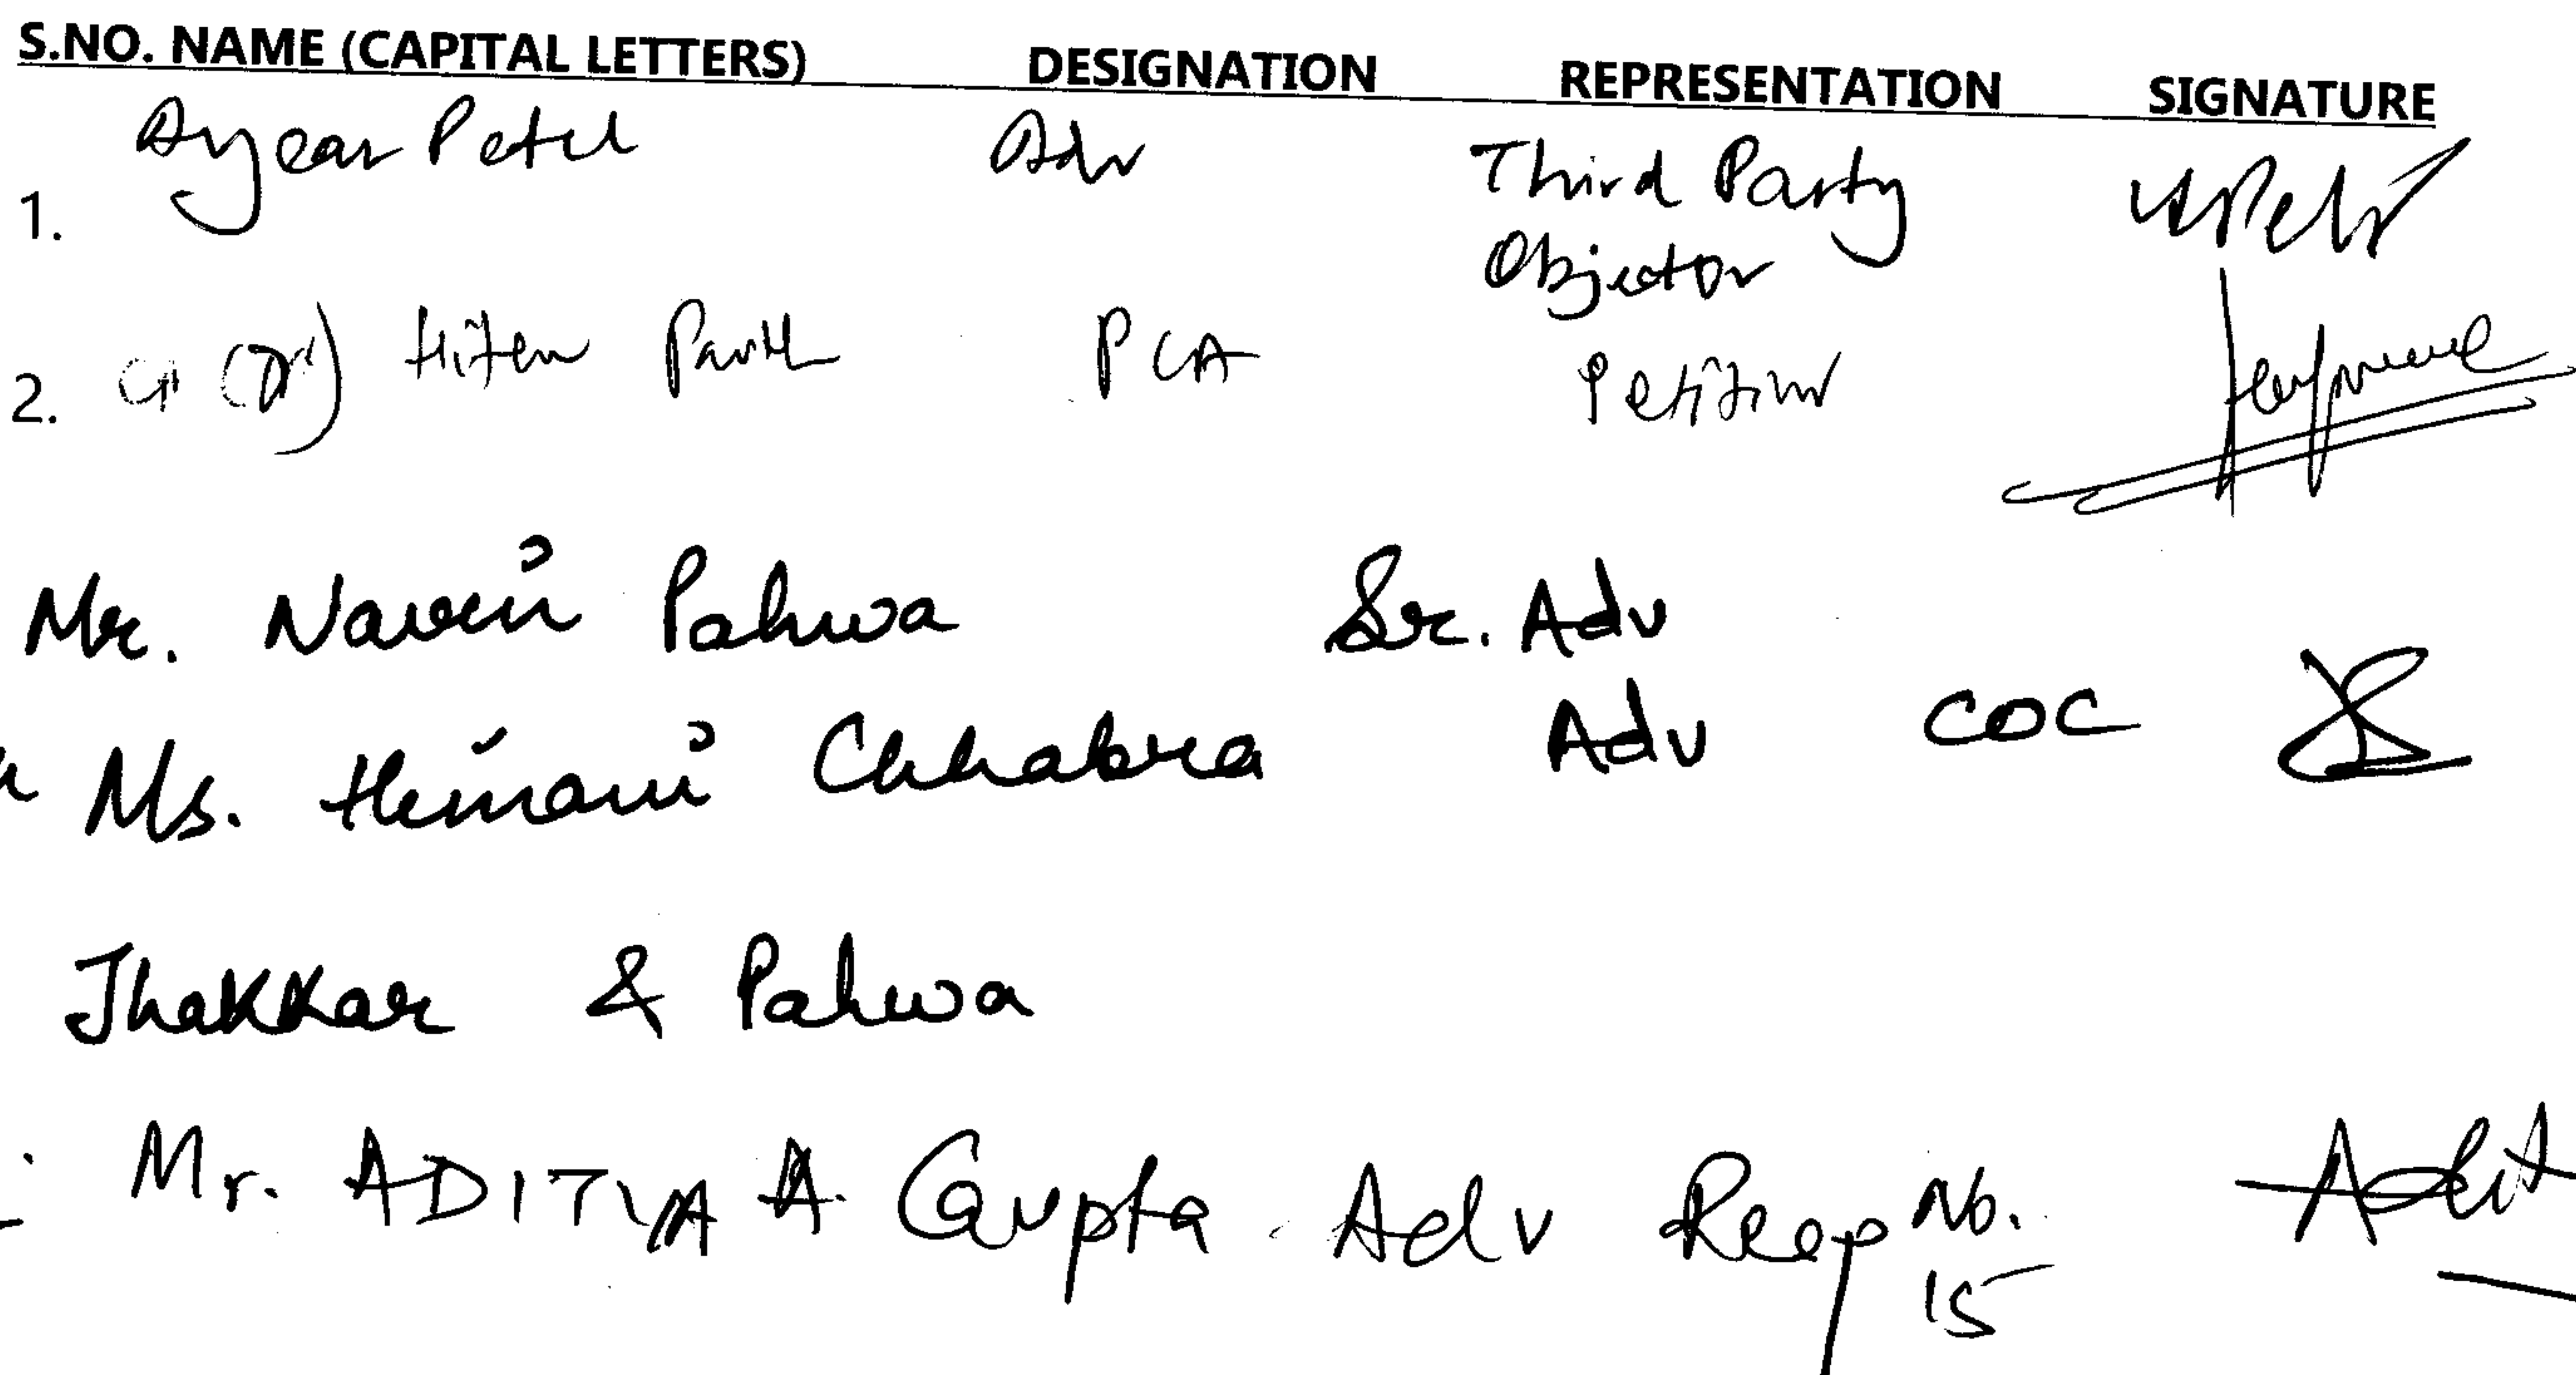 S.NO. NAME (CAPITAL LETTERS) DESIGNATION REPRESENTATION SIGNATURE
1. Patel Adv Third Party
Objector
2. Hiten Parikh PCA
Mr. Naveen Pahwa Sr. Adv
Ms. Himani Chhabra Adv COC
Thakkar & Pahwa
Mr. ADITYA A. Gupta. Adv Resp No.
15